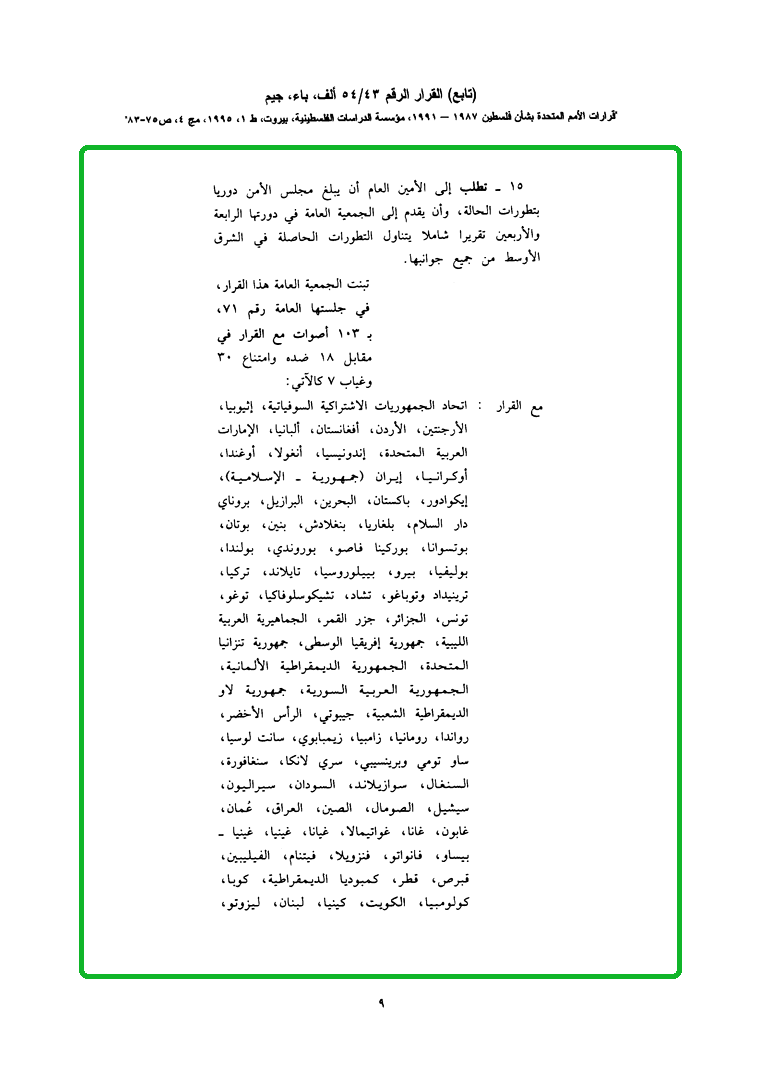 (تابع) القرار الرقم ٥٤/٤٣ ألف، باء، جيم
"قرارات الأمم المتحدة بشأن فلسطين ١٩٨٧ – ١٩٩١، مؤسسة الدراسات الفلسطينية، بيروت، ط ١، ١٩٩٥، مج ٤، ص٧٥-٨٣"
١٥ ـ تطلب إلى الأمين العام أن يبلغ مجلس الأمن دوريا
بتطورات الحالة، وأن يقدم إلى الجمعية العامة في دورتها الرابعة
والأربعين تقريرا شاملا يتناول التطورات الحاصلة في الشرق
الأوسط من جميع جوانبها.
تبنت الجمعية العامة هذا القرار،
في جلستها العامة رقم ٧١،
بـ ١٠٣ أصوات مع القرار في
مقابل ١٨ ضده وامتناع ٣٠
وغياب ٧ كالآتي:
مع القرار : اتحاد الجمهوريات الاشتراكية السوفياتية، إثيوبيا،
الأرجنتين، الأردن، أفغانستان، ألبانيا، الإمارات
العربية المتحدة، إندونيسيا، أنغولا، أوغندا،
أوكرانيا، إيران (جمهورية ـ الإسلامية)،
إيكوادور، باكستان، البحرين، البرازيل، بروناي
دار السلام، بلغاريا، بنغلادش، بنين، بوتان،
بوتسوانا، بوركينا فاصو، بوروندي، بولندا،
بوليفيا، بيرو، بييلوروسيا، تايلاند، تركيا،
ترينيداد وتوباغو، تشاد، تشيكوسلوفاكيا، توغو،
تونس، الجزائر، جزر القمر، الجماهيرية العربية
الليبية، جمهورية إفريقيا الوسطى، جمهورية تنزانيا
المتحدة، الجمهورية الديمقراطية الألمانية،
الجمهورية العربية السورية، جمهورية لاو
الديمقراطية الشعبية، جيبوتي، الرأس الأخضر،
رواندا، رومانيا، زامبيا، زيمبابوي، سانت لوسيا،
ساو تومي وبرينسيبي، سري لانكا، سنغافورة،
السنغال، سوازيلاند، السودان، سيراليون،
سيشيل، الصومال، الصين، العراق، عُمان،
غابون، غانا، غواتيمالا، غيانا، غينيا، غينيا ـ
بيساو، فانواتو، فنزويلا، فيتنام، الفيليبين،
قبرص، قطر، كمبوديا الديمقراطية، كوبا،
كولومبيا، الكويت، كينيا، لبنان، ليزوتو،
٩